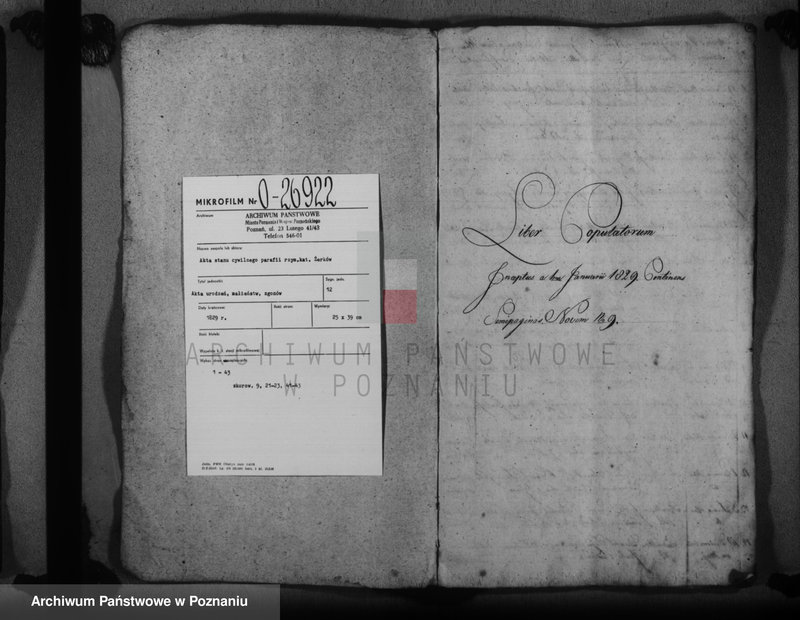 MIKROFILM Nr O-26922
Archiwum
ARCHIWUM PAŃSTWOWE
Miasta Poznania i Wojew. Poznańskiego
Poznań, ul. 23 Lutego 41/43
Telefon 546-01
Nazwa zespołu lub zbioru
Akta stanu cywilnego parafii rzym.kat. Żerków
Tytuł jednostki
Sygn. jedn.
12
Akta urodzeń, małżeństw, zgonów
Daty krańcowe
Ilość stron
Wymiary
1829 r.
25 x 39 cm
Ilość klatek
1 - 43
skorow. 9, 21-23, 41-43
Liber Copulatorum
Inceptus a 1ma Januarii 1829 Continens
Semipaginas Novem No 9.
ARCHIWUM PAŃSTWOWE
W POZNANIU
Archiwum Państwowe w Poznaniu